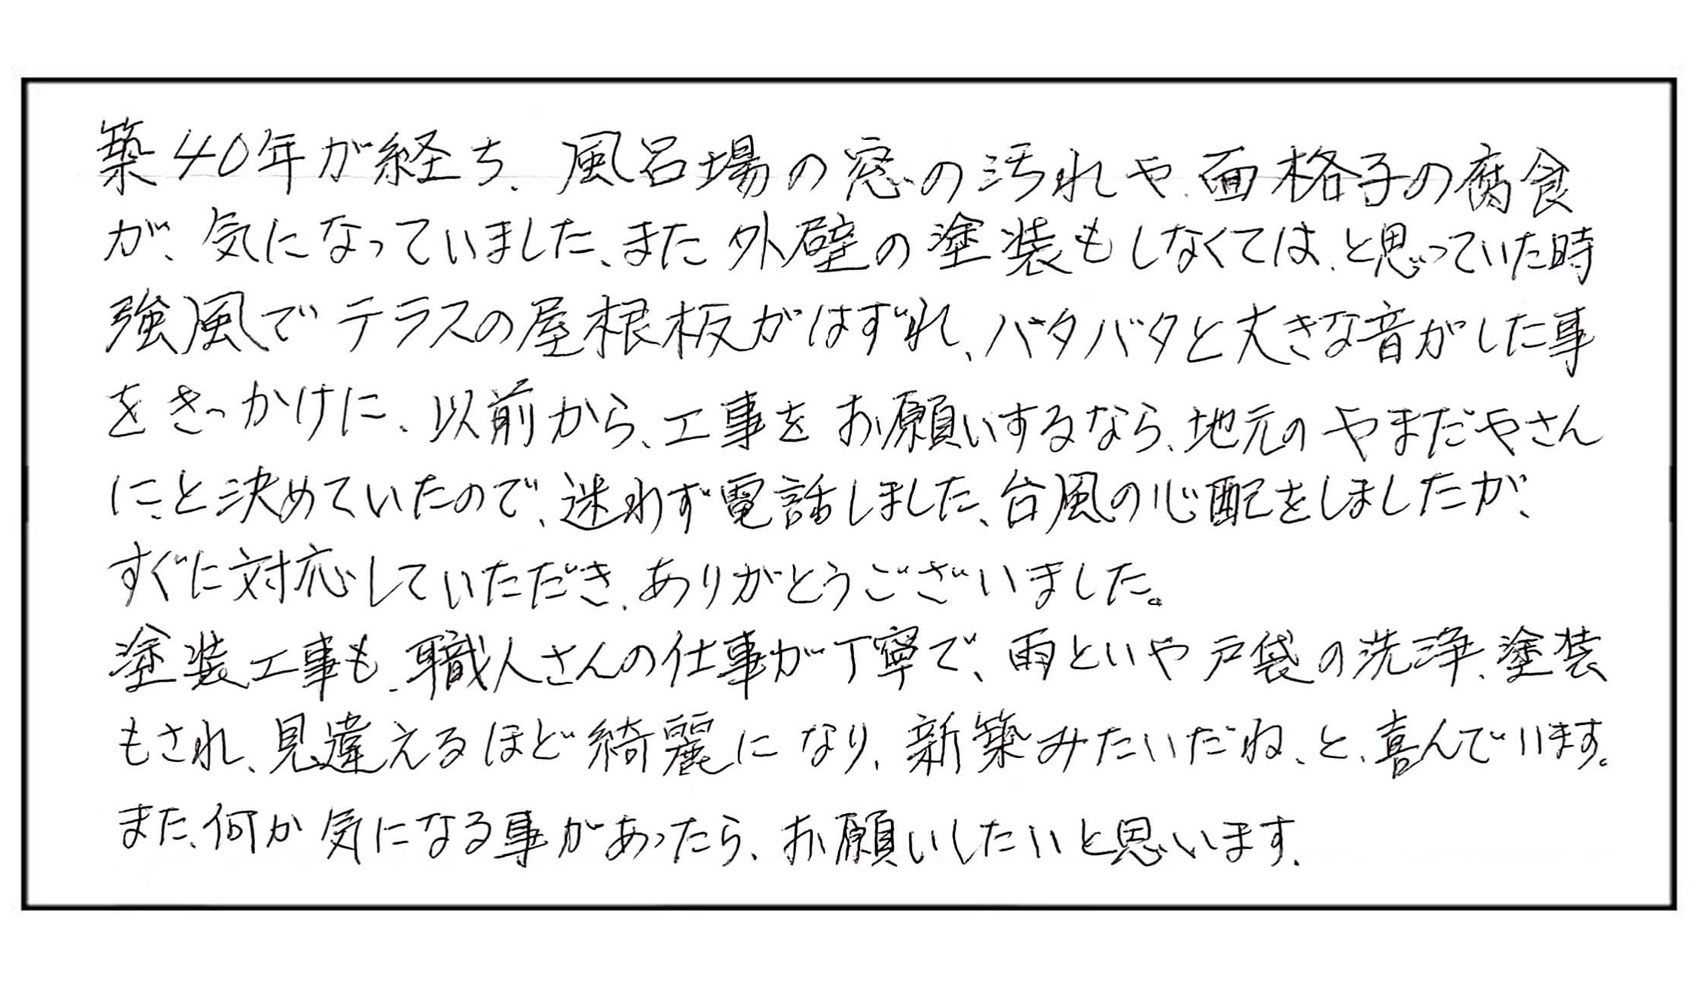 築40年が経ち、風呂場の窓の汚れや、面格子の腐食
が、気になっていました、また外壁の塗装もしなくては、と思っていた時
強風でテラスの屋根板がはずれ、バタバタと大きな音がした事
をきっかけに、以前から、工事をお願いするなら、地元のやまだやさん
に、と決めていたので、迷わず電話しました、台風の心配をしましたが、
すぐに対応していただき、ありがとうございました。
塗装工事も、職人さんの仕事が丁寧で、雨といや戸袋の洗浄、塗装
もされ、見違えるほど綺麗になり、新築みたいだね、と、喜んでいます。
また、何か気になる事があったら、お願いしたいと思います、